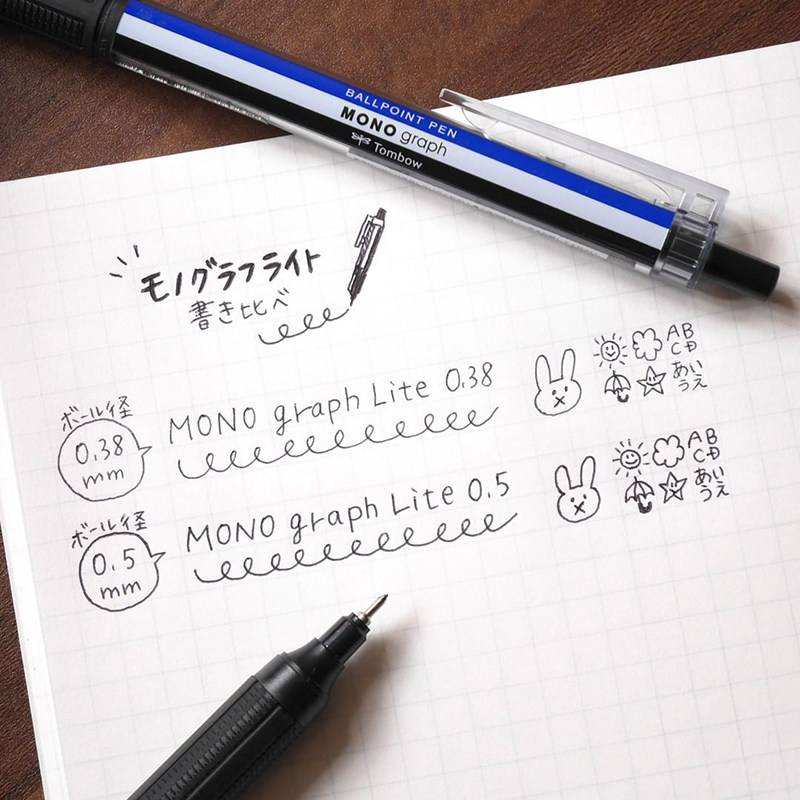 BALLPOINT PEN
MONO graph
Tombow
モノグラフライト
書き比べ
ボール径
0.38
mm
MONO graph Lite 0.38
AB
CD
あい
うえ
ボール径
0.5
mm
MONO graph Lite 0.5
AB
CD
あい
うえ